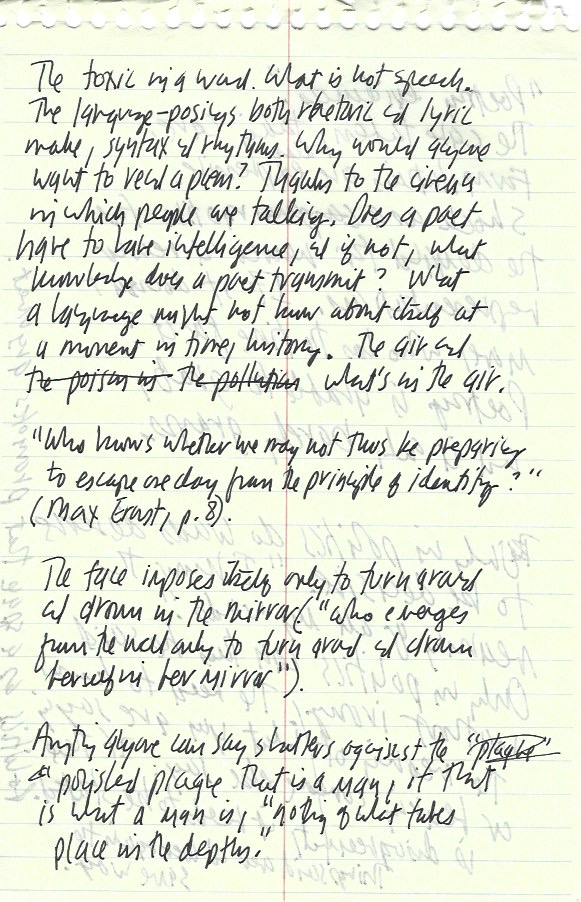 The toxic in a word. What is not speech.
The language-posings both rhetoric and lyric
make, syntax and rhythms. Why would anyone
want to read a poem? Thanks to the arena
in which people are talking. Does a poet
have to have intelligence, and if not, what
knowledge does a poet transmit? What
a language might not know about itself at
a moment in time, history. The air and
the poison in the pollution what's in the air.
"Who knows whether we may not thus be preparing
to escape one day from the principle of identity?"
(Max Ernst, p. 8).
The face imposes itself only to turn around
and drown in the mirror ("who emerges
from the well only to turn around and drown
herself in her mirror").
Anything anyone can say shatters against the "plaque"
a polished plaque that is a man, if that
is what a man is, "nothing of what takes
place in the depths."